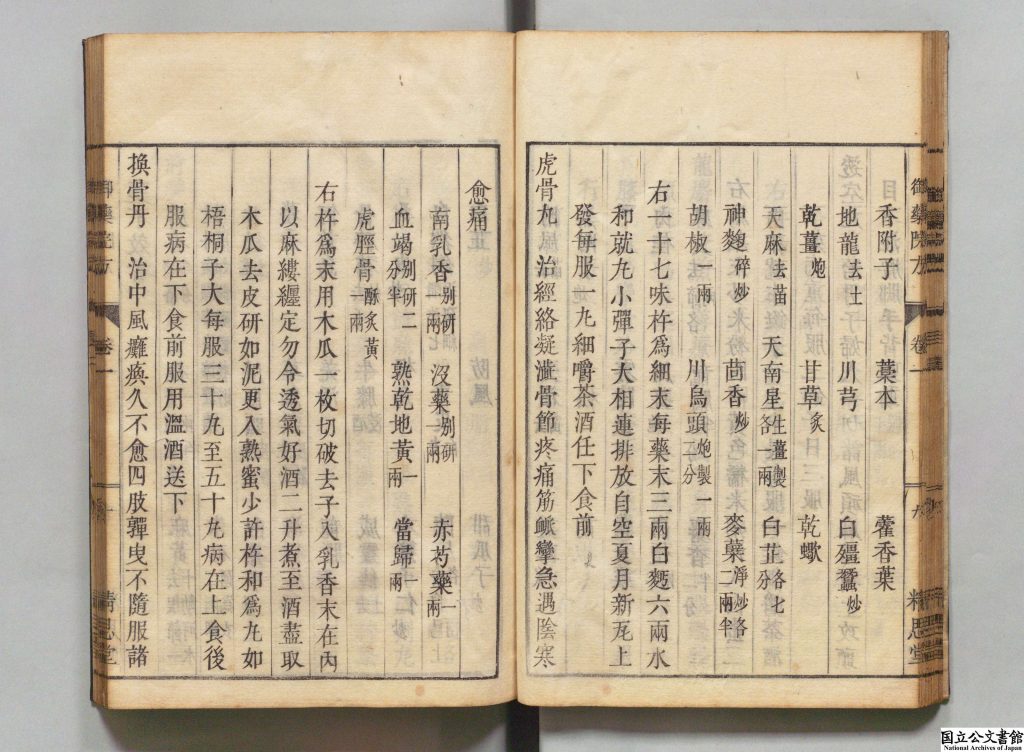 御藥院方 卷一 六 精思堂
香附子 藁本 藿香葉
地龍去土 川芎 白殭蠶炒
乾薑炮 甘草炙 乾蠍
天麻去苗 天南星生薑製各一兩 白芷各七分
神麴碎炒 茴香炒 麥蘖淨炒各二兩半
胡椒一兩 川烏頭炮製一兩二分
右一十七味杵爲細末每藥末三兩白麪六兩水
和就丸小彈子大相連排放自空夏月新瓦上
發每服一丸細嚼茶酒任下食前
虎骨丸 治經絡凝滯骨節疼痛筋𩨗攣急遇陰寒
愈痛
南乳香別研一兩 沒藥別研一兩 赤芍藥一兩
血竭別研二分半 熟乾地黃一兩 當歸一兩
虎脛骨酥炙黃一兩
右杵爲末用木瓜一枚切破去子入乳香末在內
以麻縷纏定勿令透氣好酒二升煮至酒盡取
木瓜去皮研如泥更入熟蜜少許杵和爲丸如
梧桐子大每服三十丸至五十丸病在上食後
服病在下食前服用溫酒送下
換骨丹 治中風癱瘓久不愈四肢嚲曳不隨服諸
御藥院方 卷一 精思堂
国立公文書館
National Archives of Japan